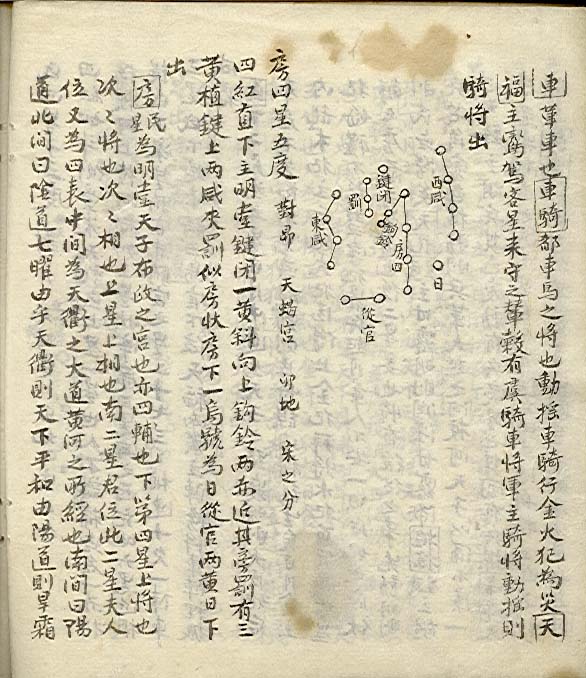 車革車也車騎都車馬之將也動搖車騎行金火犯為災天
福主鸞駕客星來守之輦轂有虞騎車將軍主騎將動搖則
騎將出
西咸
日
鍵閉
鉤鈐
房四
罰
東咸
從官
房四星五度 對昴 天蝎宮 卯地 宋之分
四紅直下主明堂鍵閉一黃斜向上鈎鈴兩赤近其旁罰有三
黃植鍵上兩咸夾罰似房狀房下一烏號為日從官兩黃日下
出
房星為明堂天子布政之宮也亦四輔也下第四星上將也
次々將也次々相也上星上相也南二星君位北二星夫人
位又為四表中間為天衢之大道黃河之所經也南間曰陽
道北間曰陰道七曜由乎天衢則天下平和由陽道則旱霜